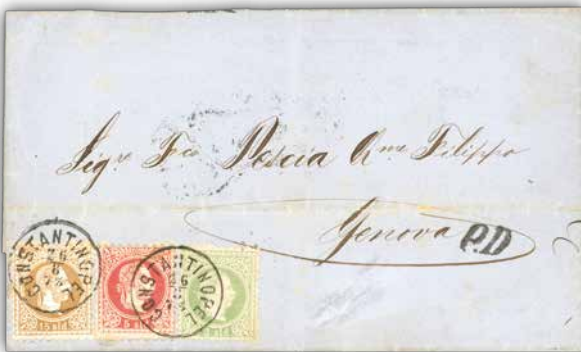 Sigr Fco Pescia Qm Filippo
Genova P.D
CONSTANTINOPEL
26
CONSTANTINOPEL
26
15 sld
5 sld